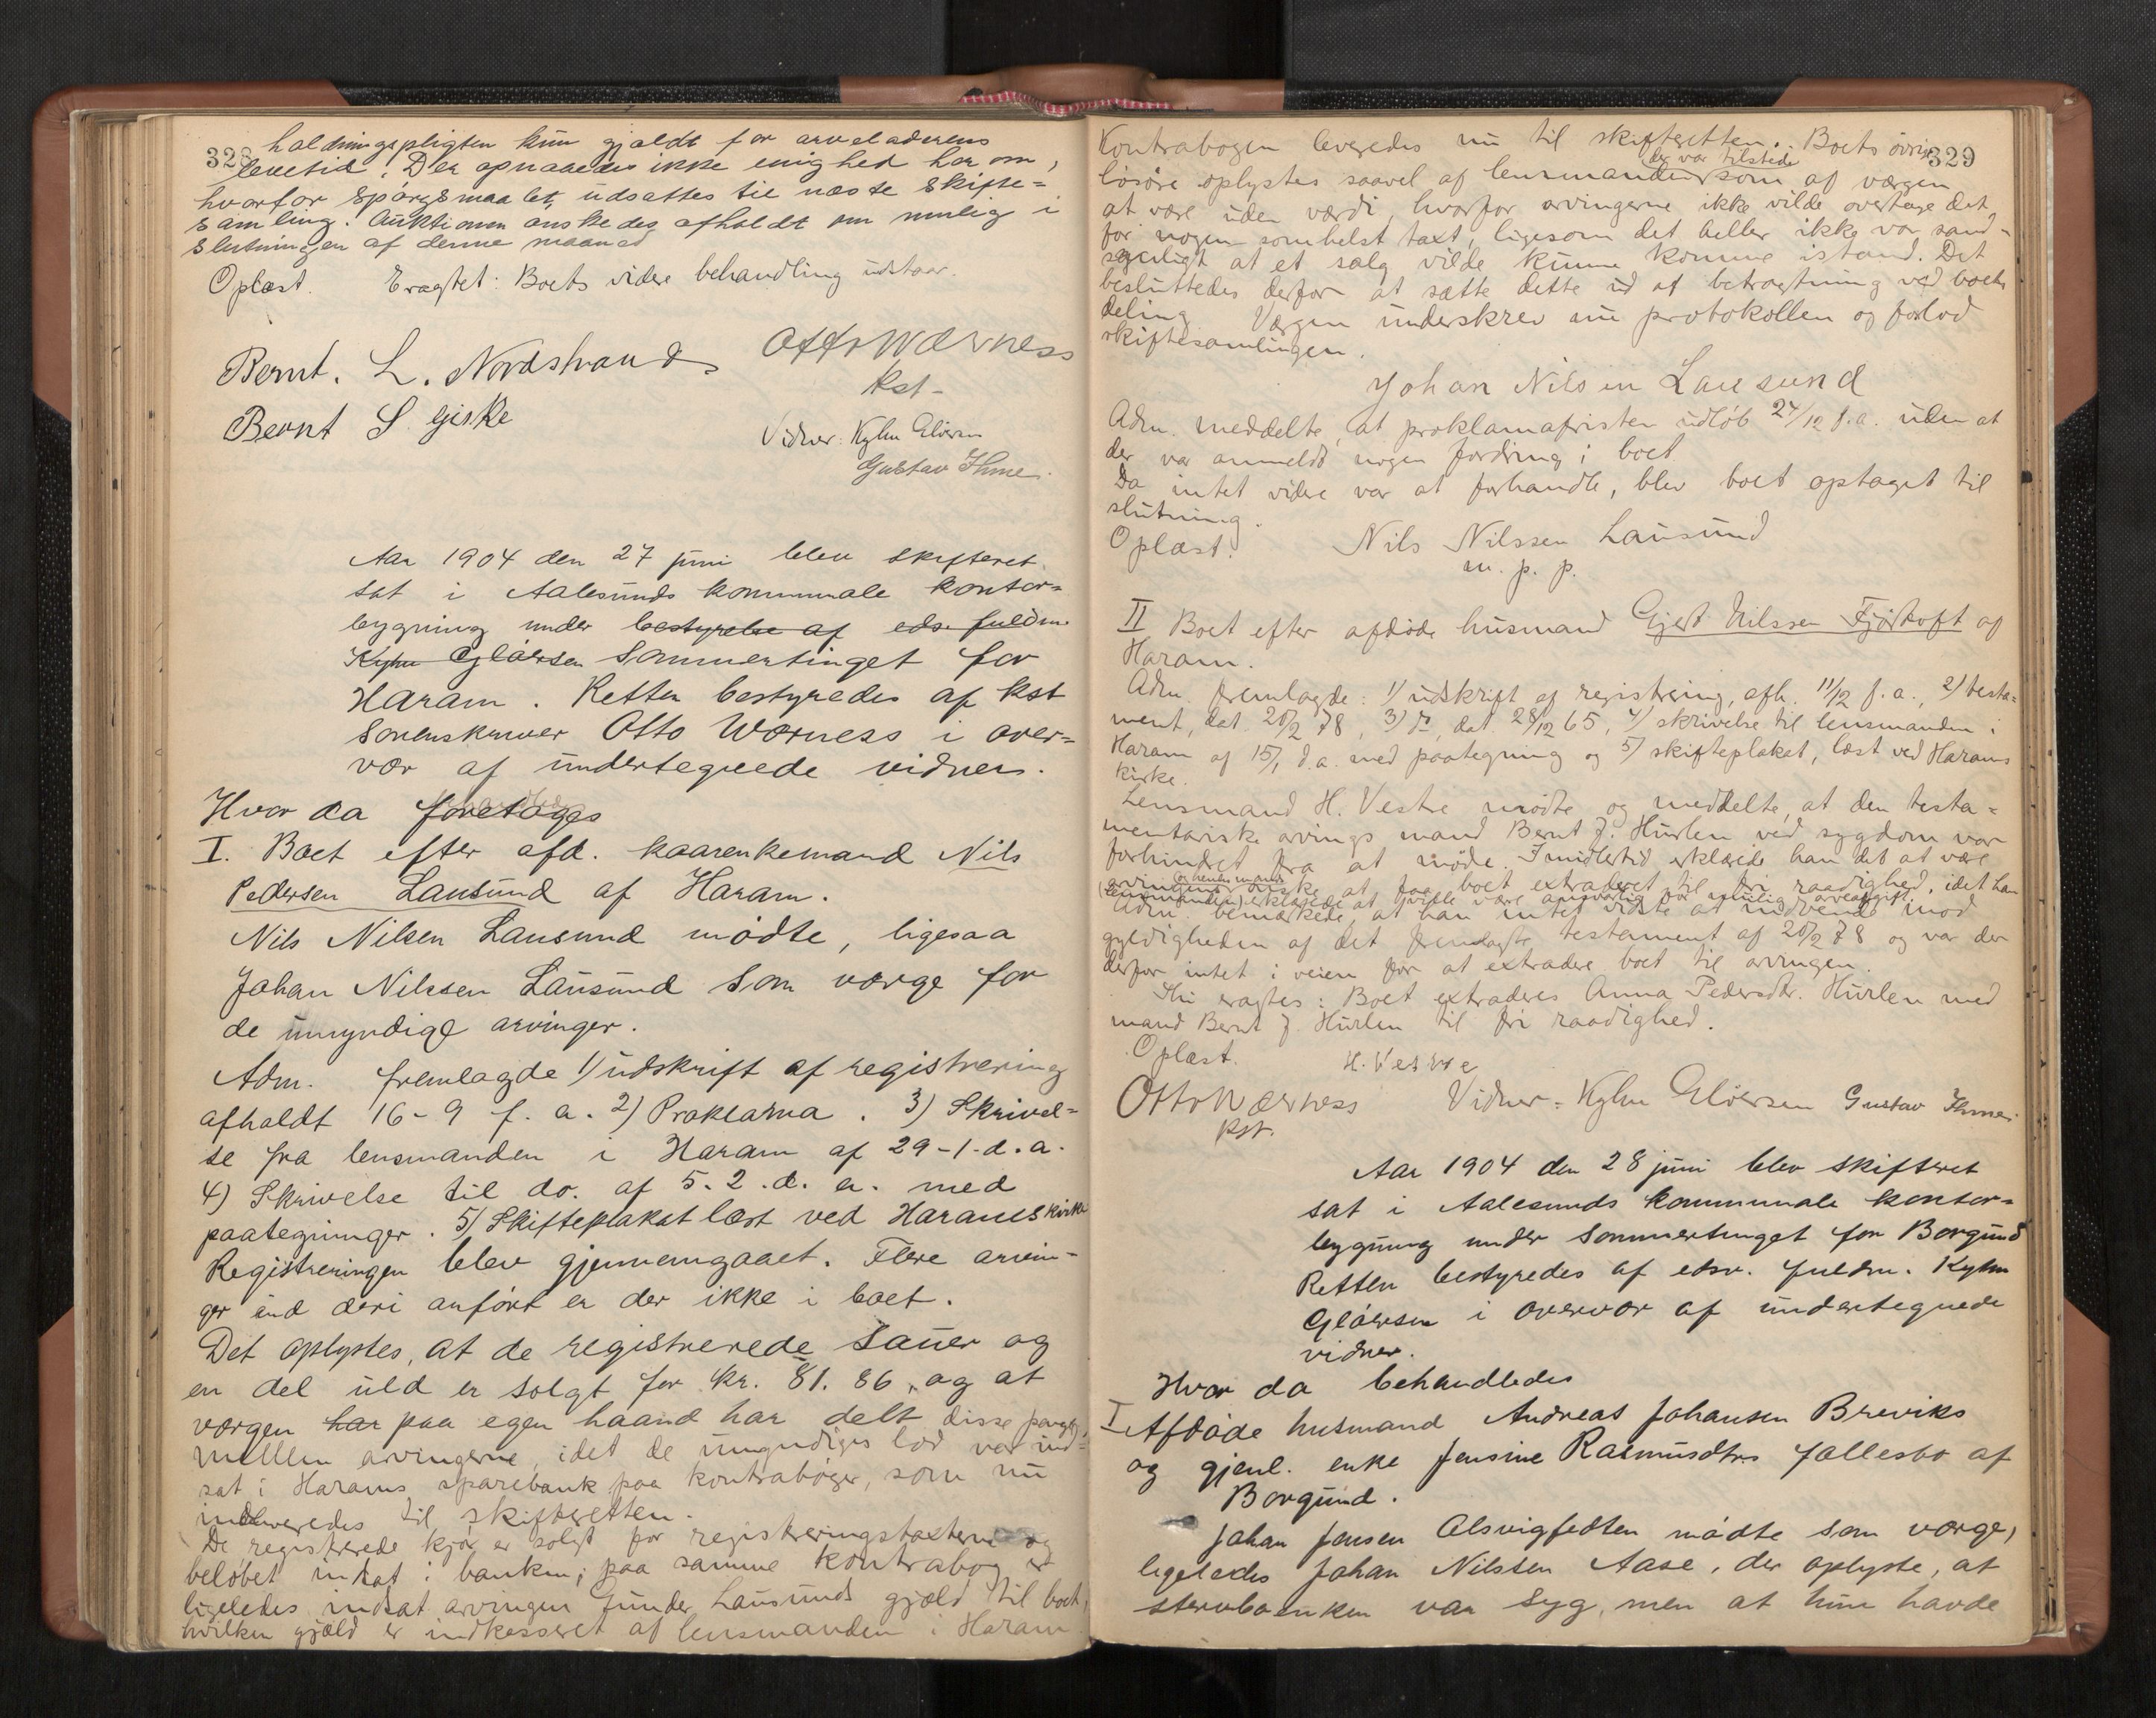 328
holdningspligten kun gjældt for arveladerens
levetid. Der opnaaedes ikke enighed her om,
hvorfor spørgsmaalet udsattes til næste skifte=
samling. Auktionen ønskedes afholdt om mulig i
slutningen af denne maaned
Oplæst. Eragtet: Boets videre behandling udstaar.
Bernt. L. Nordstrand
Otto Wærness
kst-
Bernt S. Giske
Vidner: Kyhn Gløersen
Gustav Ihme.
Aar 1904 den 27 juni blev skifteret
sat i Aalesunds kommunale kontor=
bygning under bestyrelse af eds. fuldm.
Kyhn Gløersen sommertinget for
Haram. Retten bestyredes af kst
Sorenskriver Otto Wærness i over=
vær af undertegnede vidner.
Hvor da foretoges
I. Boet efter afd. kaarenkemand Nils
Pedersen Lausund af Haram.
Nils Nilsen Lausund mødte, ligesaa
Johan Nilssen Lausund som værge for
de umyndige arvinger.
Adm. fremlagde 1) udskrift af registrering
afholdt 16-9 f. a. 2) Proklama. 3) Skrivel=
se fra lensmanden i Haram af 29-1-d.a.
4) Skrivelse til do. af 5. 2. d. a. med
paategninger. 5) Skifteplakat læst ved Harams kirke
Registreringen blev gjennemgaaet. Flere arvin=
ger end deri anført er der ikke i boet.
Det oplystes, at de registrerede sauer og
en del uld er solgt for kr. 81.86, og at
værgen har paa egen haand har delt disse penge
mellem arvingerne, idet de umyndiges lod var ind=
sat i Harams sparebank paa kontrabøger, som nu
indleveredes til skifteretten.
De registrerede kjør er solgt for registreringstaxterne og
beløbet indsat i banken; paa samme kontrabog er
ligeledes indsat arvingen Gunder Lausunds gjæld til boet,
hvilken gjæld er indkasseret af lensmanden i Haram
329
Kontrabogen leveredes nu til skifteretten. Boets øvrige
løsøre oplystes saavel af lensmanden der var tilstede som af værgen
at være uden værdi, hvorfor arvingerne ikke vilde overtage det
for nogen somhelst taxt, ligesom det heller ikke var sand=
synligt at et salg vilde kunne komme istand. Det
besluttedes derfor at sætte dette ud af betragtning ved boets
deling. Værgen underskrev nu protokollen og forlod
skiftesamlingen.
Johan Nilsen Lausund
Adm. meddelte, at proklamafristen udløb 27/12 f.a. uden at
der var anmeldt nogen fordring i boet
Da intet videre var at forhandle, blev boet optaget til
slutning.
Oplæst. Nils Nilssen Lausund
m. p. p.
II Boet efter afdøde husmand Gjert Nilssen Fjørtoft af
Haram.
Adm. fremlagde: 1) udskrift af registrering, afh. 11/12 f.a., 2) testa=
ment, dat 20/2 78, 3) do, dat 28/12 65, 4) skrivelse til lensmanden i
Haram af 15/1 d.a. med paategning og 5) skifteplakat, læst ved Harams
kirke.
Lensmand H. Vestre mødte og meddelte, at den testa=
mentariske arvings mand Bernt J. Hurlen ved sygdom var
forhindret fra at møde. Imidlertid erklærede han det at være
arvingens og hendes mands ønske at faa boet extraderet til fri raadighed, idet han
(lensmanden) erklærede at ville være ansvarlig for mulig arveafgift.
Adm. bemærkede, at han intet vidste at indvende mod
gyldigheden af det fremlagte testament af 20/2 78 og var der
derfor intet i veien for at extradere boet til arvingen.
Thi eragtes: Boet extraderes Anna Pedersdtr. Hurlen med
mand Bernt J. Hurlen til fri raadighed.
Oplæst. H. Vestre
Otto Wærness
kst.
Vidner: Kyhn Gløersen Gustav Ihme.
Aar 1904 den 28 juni blev skifteret
sat i Aalesunds kommunale kontor=
bygning under sommertinget for Borgund
Retten bestyredes af edsv. fuldm. Kyhn
Gløersen i overvær af undertegnede
vidner.
Hvor da behandledes
I Afdøde husmand Andreas Johansen Breviks
og gjenl. enke Jensine Rasmusdtrs fællesbo af
Borgund.
Johan Jensen Alsvigfedten mødte som værge,
ligeledes Johan Nilssen Aase, der oplyste, at
stervboenken var syg, men at hun havde